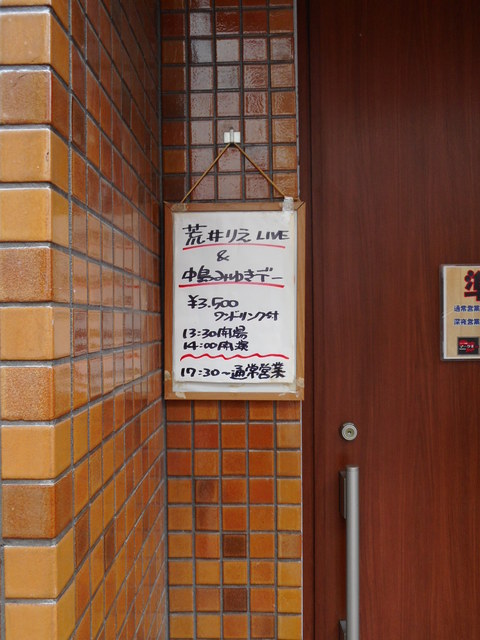 荒井りえ LIVE
&
中島みゆきデー
¥3.500
ワンドリンク付
13:30開場
14:00開演
17:30〜通常営業
準
通常営業
深夜営業